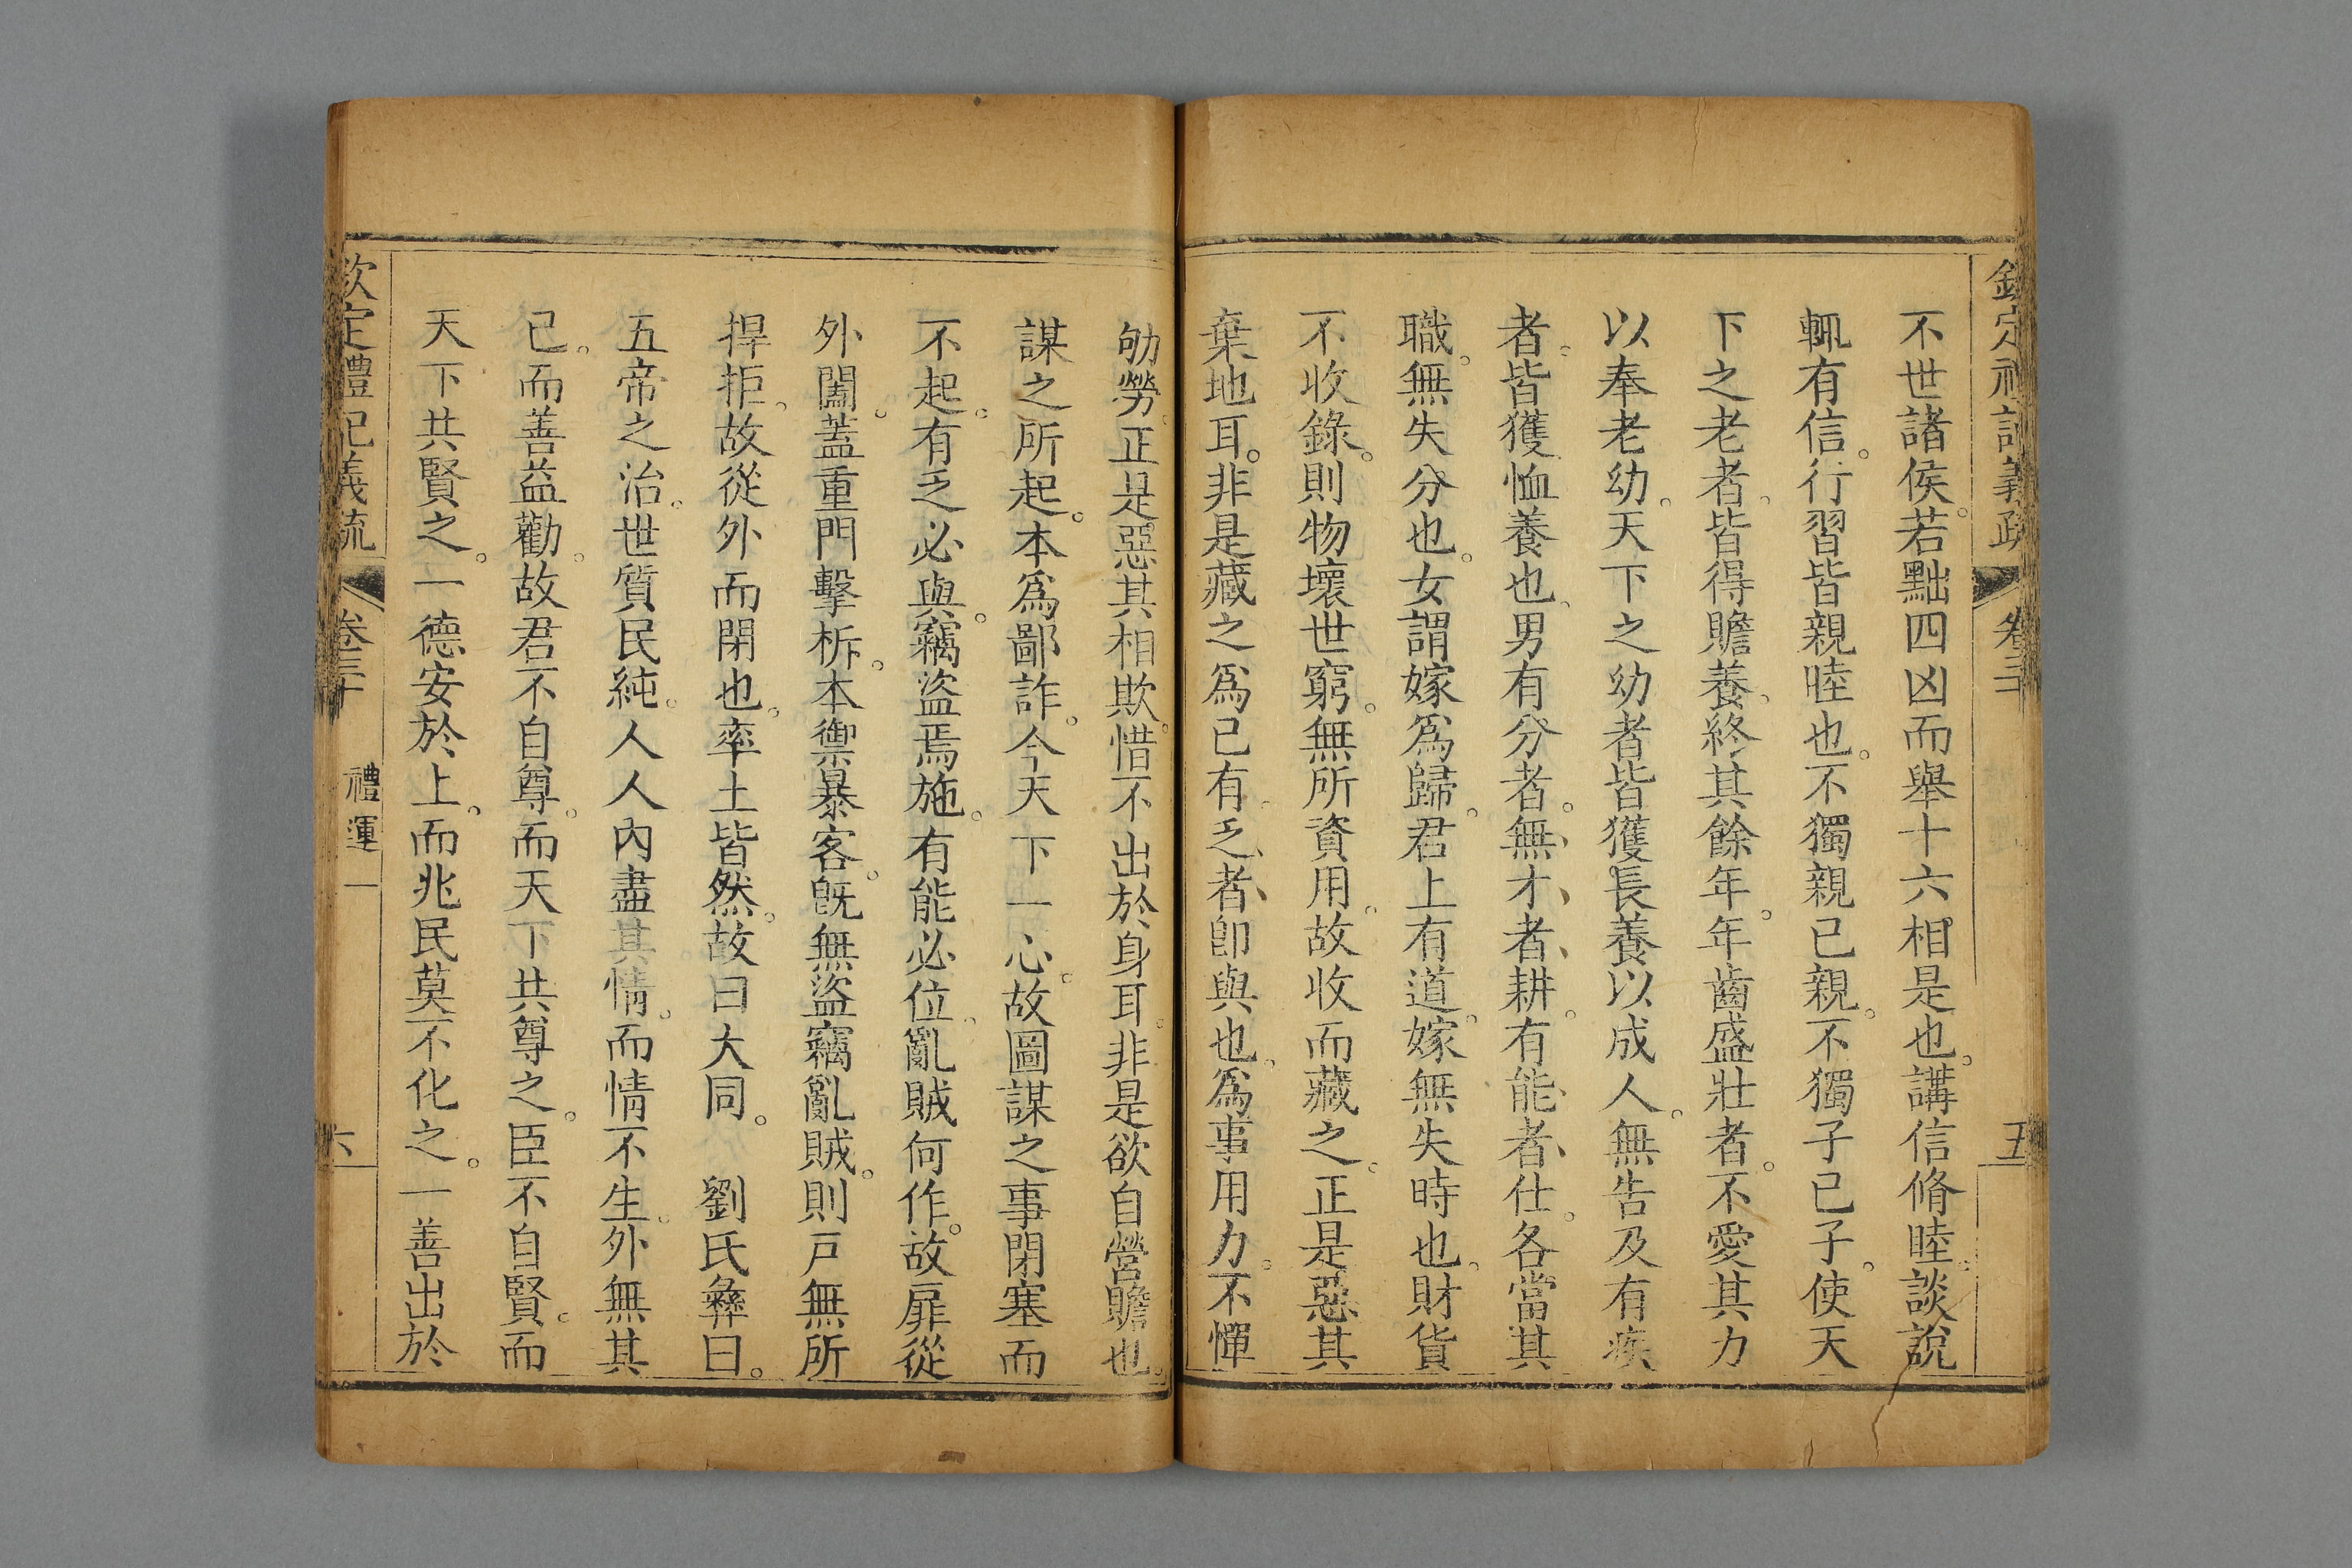 欽定禮記義疏 卷三十 五
不世諸侯。若黜四凶而舉十六相是也。講信脩睦。談說
輒有信。行習皆親睦也。不獨親已親。不獨子已子。使天
下之老者。皆得贍養。終其餘年。年齒盛壯者。不愛其力
以奉老幼。天下之幼者皆獲長養以成人。無告及有疾
者。皆獲恤養也、男有分者。無、才、者、耕。有能、者、仕。各當其
職。無失分也。女謂嫁爲歸。君上有道。嫁無失時也。財貨
不收錄。則物壞世窮。無所資用。故收而藏之。正是惡其
棄地耳。非是藏之爲已有。乏、者、卽與也。爲事用力。不憚
劬勞。正是惡其相欺。惜不出於身耳。非是欲自營贍也。
謀之所起。本爲鄙詐。今天下一心。故圖謀之事閉塞而
不起。有乏必與。竊盜焉施。有能必位。亂賊何作。故扉從
外闔。蓋重門擊柝。本禦暴客。旣無盜竊亂賊。則戸無所
捍拒。故從外而閉也。率土皆然。故曰大同。 劉氏彝曰。
五帝之治。世質民純。人人內盡其情。而情不生。外無其
已。而善益勸。故君不自尊。而天下共尊之。臣不自賢。而
天下共賢之。一德安於上。而兆民莫不化之。一善出於
欽定禮記義疏 卷三十 禮運一 六